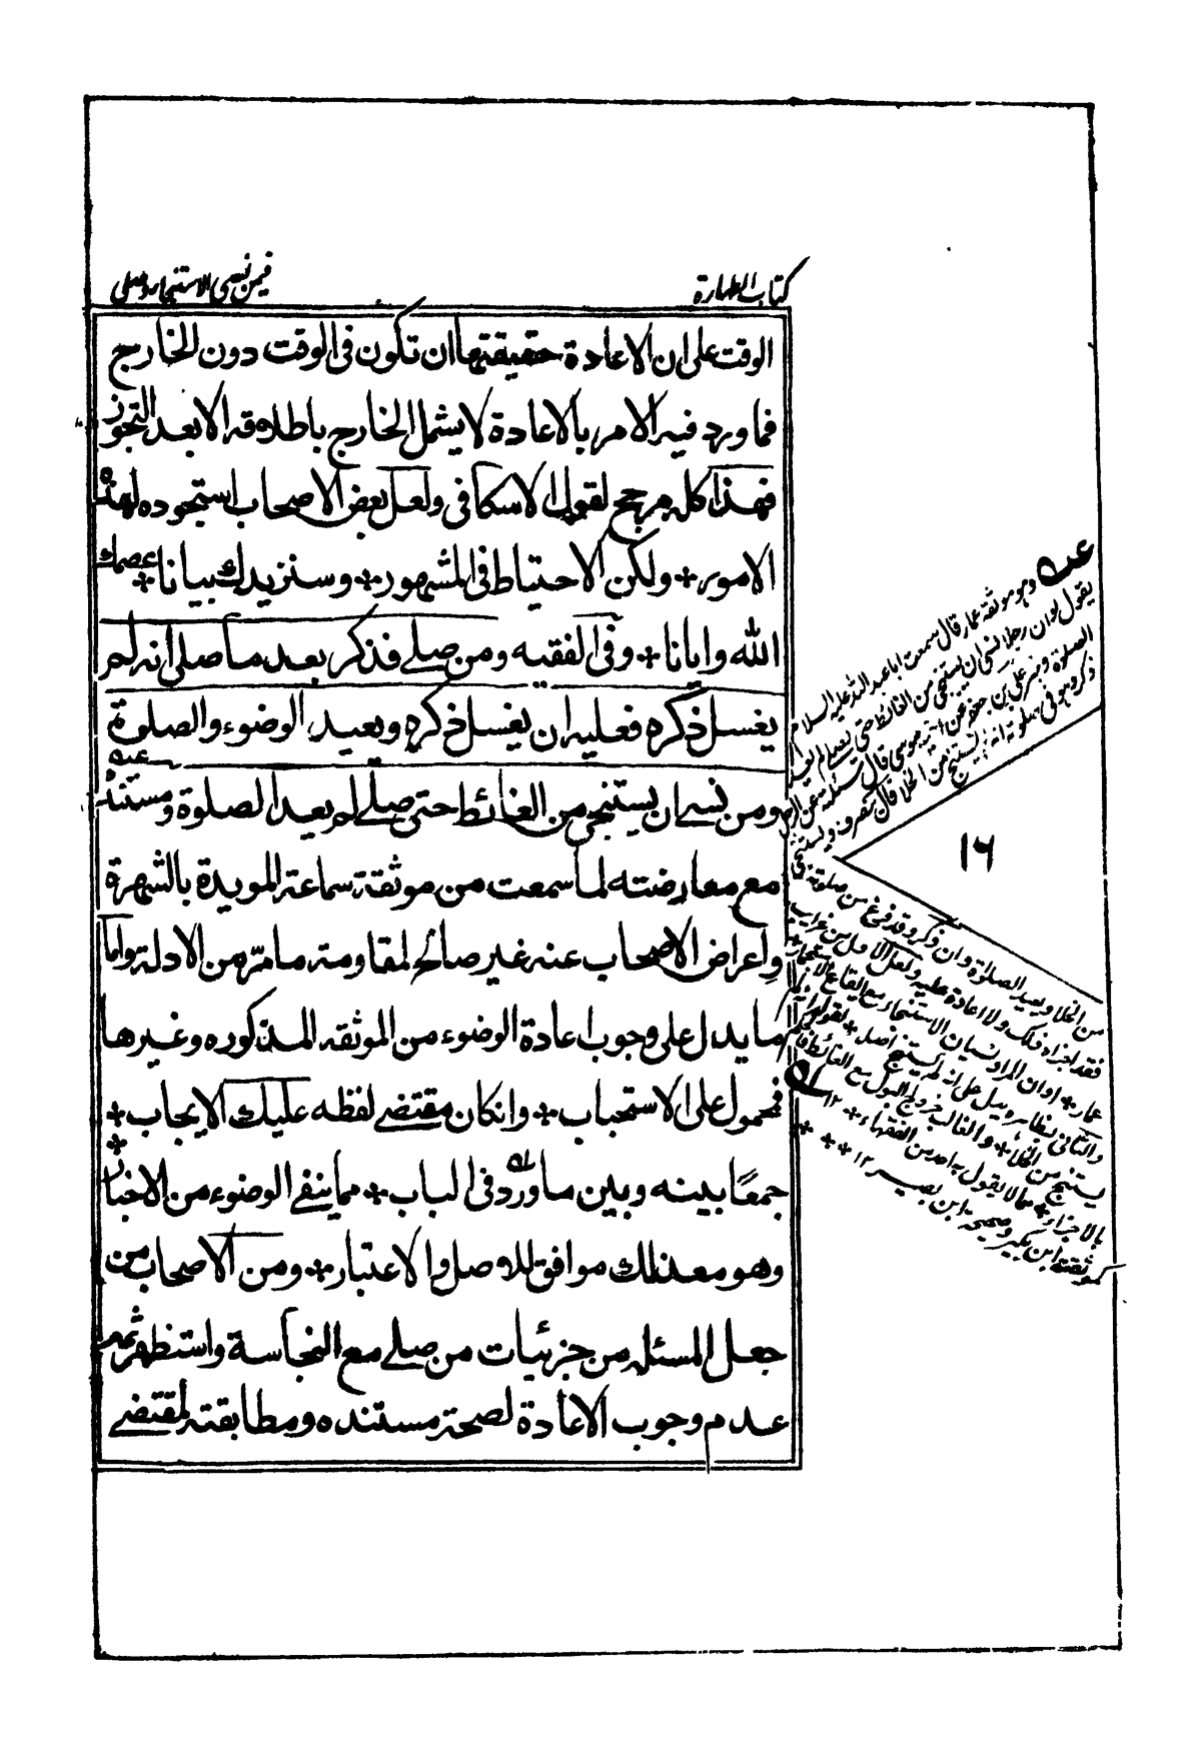 كتاب الطهارة
فيمن نسى الاستنجاء وصلى
الوقت على ان الاعادة حقيقتها ان تكون فى الوقت دون الخارج
فما ورد فيه الامر بالاعادة لا يشمل الخارج باطلاقه الا بعد التجوز
فهذا كله مرجح لقول الاسكافى ولعل بعض الاصحاب استجوده لهذه
الامور * ولكن الاحتياط فى المشهور * وسنزيدك بيانا * عصمك
الله وايانا * وفى الفقيه ومن صلے فذكر بعد ما صلى انه لم
يغسل ذكره فعليه ان يغسل ذكره ويعيد الوضوء والصلوة
ومن نسے ان يستنجى من الغائط حتى صلے لم يعد الصلوة ومستنده
مع معارضته لما سمعت من موثقة سماعة المويدة بالشهرة
واعراض الاصحاب عنه غير صالح لمقاومة ما مرّ من الادلة واما
ما يدل على وجوب اعادة الوضوء من الموثقه المذكوره وغيرها
فمحمول على الاستحباب * وانكان مقتضے لفظه عليك الايجاب *
جمعًا بينه وبين ما ورد فى الباب * مما ينفے الوضوء من الاخبار *
وهو معذلك موافق للاصل والاعتبار * ومن الاصحاب من
جعل المسئله من جزئيات من صلے مع النجاسة واستظهر ثمه
عدم وجوب الاعادة لصحة مستنده ومطابقته لمقتضے
عنه وهو موثقة عمار قال سمعت ابا عبد الله عليه السلام
يقول لو ان رجلا نسى ان يستنجى من الغائط حتى يصلى لم يعد
الصلوة وخبر على بن جعفر عن اخيه موسى قال سئلته عن الرجل
ذكر وهو فى صلوته انه لم يستنج من الخلا قال ينصرف ويستنجى
١٦
من الخلا ويعيد الصلاة وان ذكر وقد فرغ من صلوته
فقد اجزاه ذلك ولا اعادة عليه ولعل الاول من غرايب
عمار * او ان المراد نسيان الاستنجاء مع ايقاع الاستجمار *
والثانى بظاهره يدل على انه لم يستنج اصلا * لقوله لم
يستنج من الخلا * والغالب خروج البول مع الغائط
بالاجزاء * مما لا يقول به احد من الفقهاء * ١٢
موثقة ابن بكير وصحيحة ابن بصير ١٢ * * *